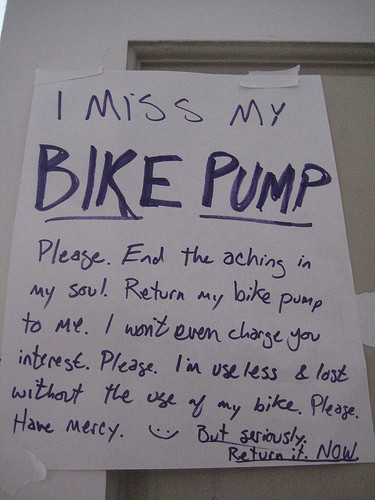 I MISS MY
BIKE PUMP
Please. End the aching in
my soul. Return my bike pump
to me. I won't even charge you
interest. Please. I'm useless & lost
without the use of my bike. Please.
Have mercy. But seriously.
Return it. NOW.